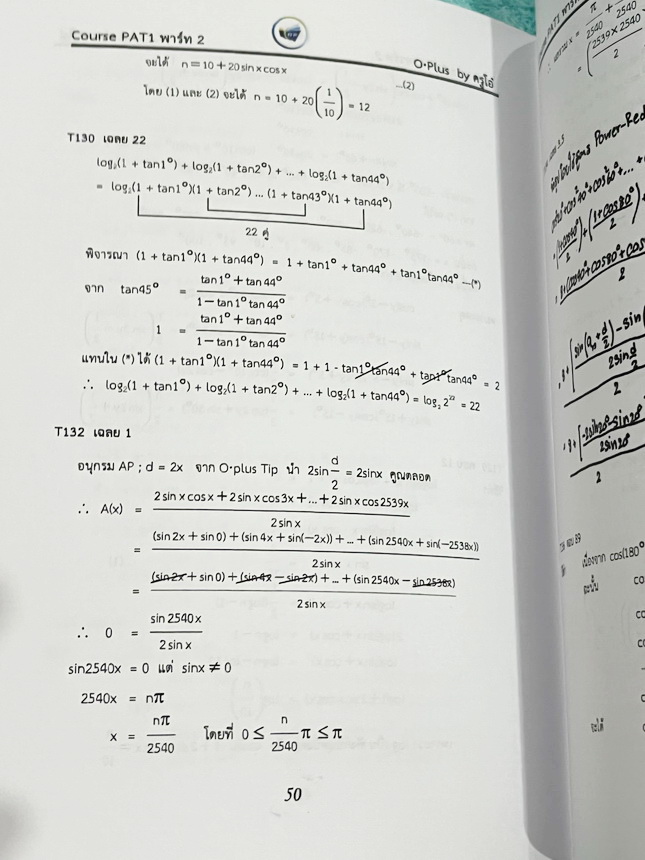 Course PAT1 พาร์ท 2
O·Plus by ครูโอ๋
จะได้ n = 10 + 20 sin x cos x ...(2)
โดย (1) และ (2) จะได้ n = 10 + 20(1/10) = 12
T130 เฉลย 22
log₂(1 + tan1°) + log₂(1 + tan2°) + ... + log₂(1 + tan44°)
= log₂(1 + tan1°)(1 + tan2°) ... (1 + tan43°)(1 + tan44°)
22 คู่
พิจารณา (1 + tan1°)(1 + tan44°) = 1 + tan1° + tan44° + tan1°tan44° ---(*)
จาก tan45° = (tan1° + tan44°)/(1 − tan1° tan44°)
1 = (tan1° + tan44°)/(1 − tan1° tan44°)
แทนใน (*) ได้ (1 + tan1°)(1 + tan44°) = 1 + 1 - tan1°tan44° + tan1°tan44° = 2
∴ log₂(1 + tan1°) + log₂(1 + tan2°) + ... + log₂(1 + tan44°) = log₂ 2²² = 22
T132 เฉลย 1
อนุกรม AP ; d = 2x จาก O·plus Tip นำ 2sin d/2 = 2sinx คูณตลอด
∴ A(x) = (2 sin x cos x + 2 sin x cos 3x + ... + 2 sin x cos 2539x)/(2 sin x)
= ((sin 2x + sin 0) + (sin 4x + sin(−2x)) + ... + (sin 2540x + sin(−2538x)))/(2 sin x)
= ((sin 2x + sin 0) + (sin 4x − sin 2x) + ... + (sin 2540x − sin 2538x))/(2 sin x)
∴ 0 = (sin 2540x)/(2 sin x)
sin2540x = 0 แต่ sinx ≠ 0
2540x = nπ
x = nπ/2540 โดยที่ 0 ≤ n/2540 π ≤ π
50
(2539 × 2540
2
Power-Red
เนื่องจาก cos(180°
ดังนั้น
จะได้